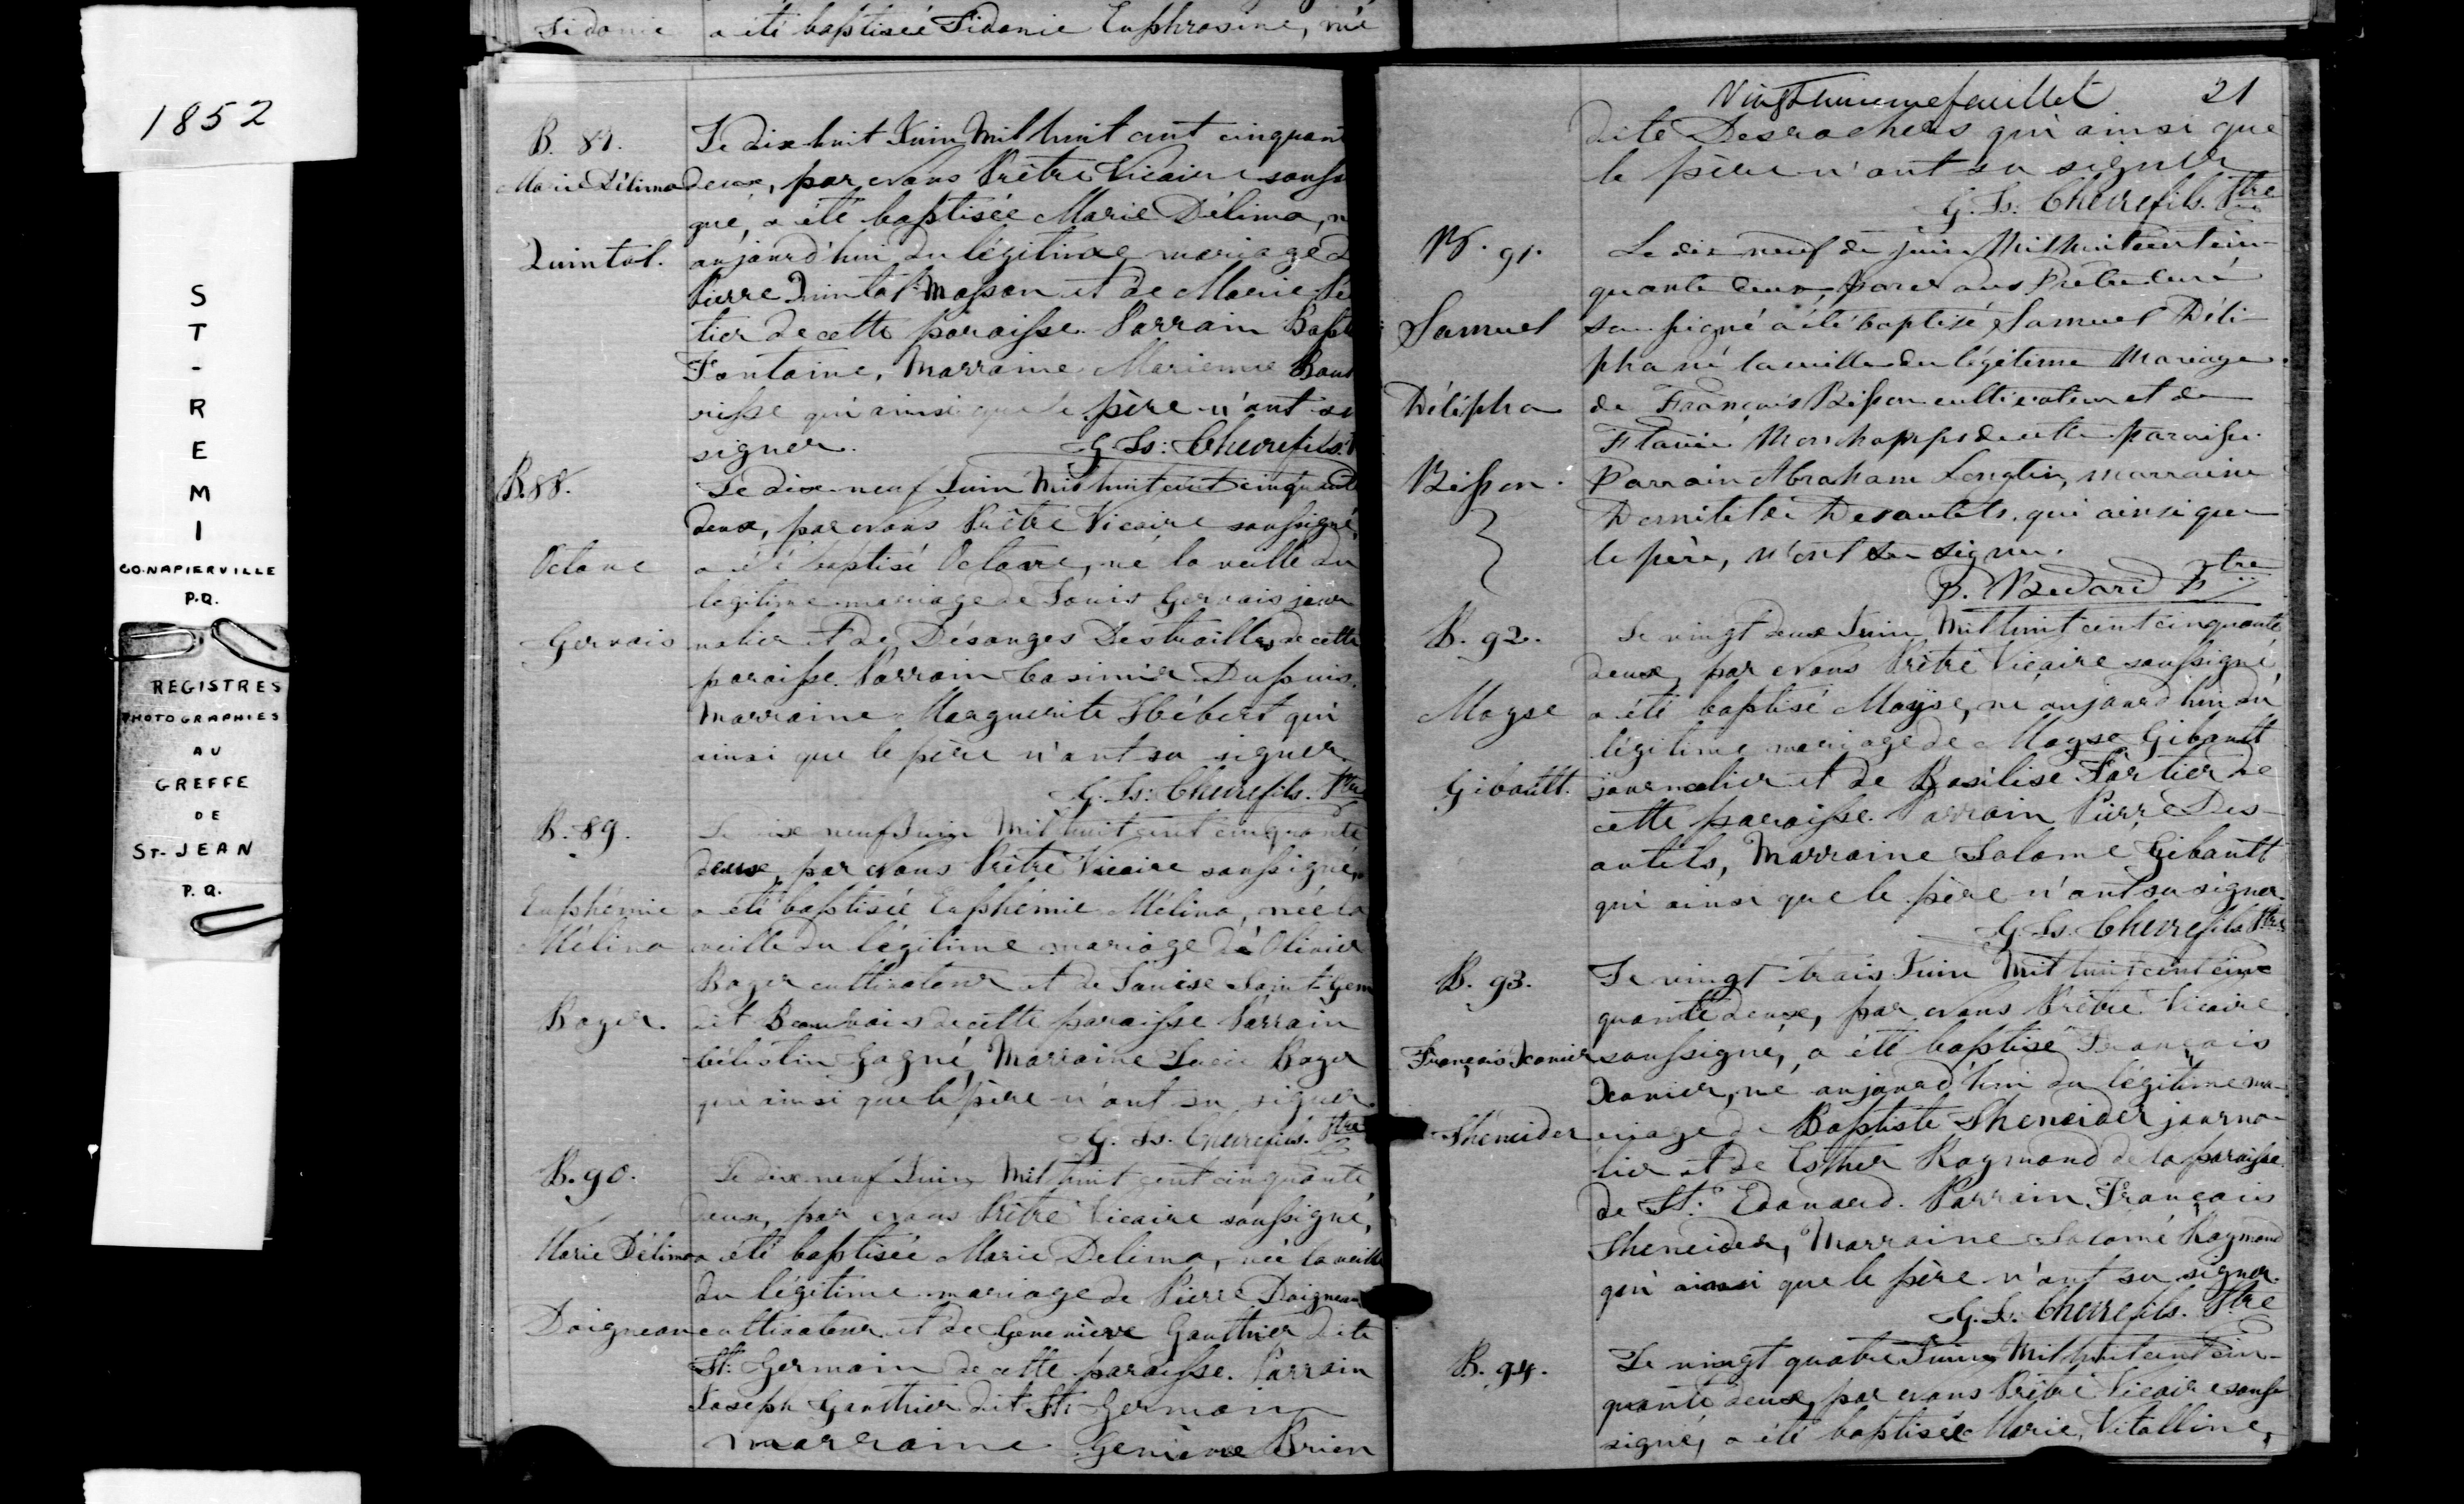 1852
ST-REMI
CO. NAPIERVILLE
P.Q.
REGISTRES
PHOTOGRAPHIES
AU
GREFFE
DE
ST-JEAN
P.Q.
Sidonie a été baptisée Sidonie Euphrosine, née
B. 87. Le dix huit Juin Mil huit cent cinquant
Marie Délima deux, par Nous Prêtre Vicaire soussi
gné, a été baptisée Marie Délima, n
Quintal. aujourd'hui du légitime mariage d
Pierre Quintal Mason et de Marie Pé
tier de cette paroisse. Parrain Bapt
Fontaine, Marraine Marienne Bou
risse qui ainsi que le père n'ont su
signer. G. Ls: Chevrefils. P
B. 88. Le dix neuf Juin Mil huit cent cinquante
deux, par Nous Prêtre Vicaire soussigné,
Octave a été baptisé Octave, né la veille du
légitime mariage de Louis Gervais jour
Gervais nalier et de Désanges Destrailles de cette
paroisse. Parrain Casimir Dupuis,
Marraine Marguerite Hébert qui
ainsi que le père n'ont su signer.
G. Ls: Chevrefils. Ptre
B. 89. Le dix neuf Juin Mil huit cent cinquante
deux, par Nous Prêtre Vicaire soussigné,
Euphémie a été baptisée Euphémie Mélina, née la
Mélina veille du légitime mariage de Olivier
Boyer cultivateur et de Louise Saint Gem
Boyer. dit Beauvais de cette paroisse Parrain
Célestin Gagné, Marraine Lucie Boyer
qui ainsi que le père n'ont su signer.
G. Ls. Chevrefils. Ptre
B. 90. Le dix neuf Juin Mil huit cent cinquante
deux, par Nous Prêtre Vicaire soussigné,
Marie Délima a été baptisée Marie Delima, née la veille
du légitime mariage de Pierre Daigneau
Daigneau cultivateur et de Genevière Gauthier dite
St: Germain de cette paroisse. Parrain
Joseph Gauthier dit St: Germain
marraine Genière Brien
Vingt unieme feuillet 21
dite Desrochers qui ainsi que
le père n'ont su signer
G. Ls: Chevrefils. Ptre
B. 91. Le dix neuf de juin Mil huit cent cin-
quante deux, par Nous Prêtre Curé
Samuel soussigné a été baptisé Samuel Déli-
pha né la veille du légitime Mariage
Délipha de François Bisson cultivateur et de
Flavie Monchamps de cette paroisse.
Bisson. Parrain Abraham Longtin, marraine
Domitilde Desautels, qui ainsi que
le père, n'ont su signer.
P. Bedard Ptre
B. 92. Le vingt deux Juin Mil huit cent cinquante
deux, par Nous Prêtre Vicaire soussigné
Moyse a été baptisé Moyse, né aujourd'hui du
légitime mariage de Moyse Gibault
Gibault. journalier et de Basilise Fortier de
cette paroisse. Parrain Pierre Des-
autels, Marraine Salome Gibault
qui ainsi que le père n'ont su signer.
G. Ls. Chevrefils Ptre
B. 93. Le vingt trois Juin Mil huit cent cinq
quante deux, par Nous Prêtre Vicaire
François Xavier soussigné, a été baptisé François
Xavier, né aujourd'hui du légitime ma-
Sheneider riage de Baptiste Sheneider journa-
lier et de Esther Raymond de la paroisse
de St: Edouard. Parrain François
Sheneider, Marraine Salomé Raymond
qui ainsi que le père n'ont su signer.
G. L. Chevrefils. Ptre
B. 94. Le vingt quatre Juin Mil huit cent cin-
quante deux, par Nous Prêtre Vicaire sous-
signé, a été baptisée Marie Vitalline,